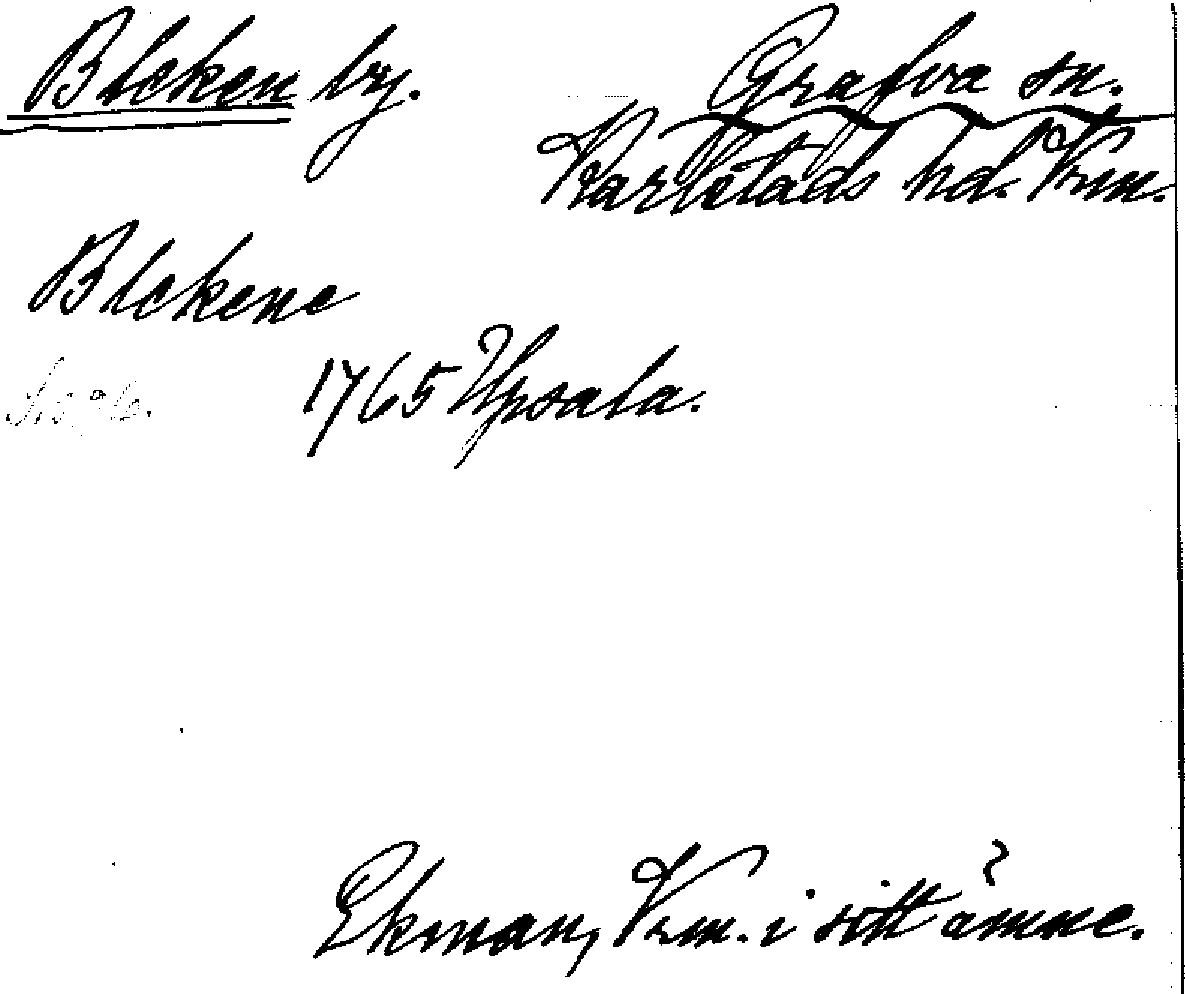 Bleken by. Grafva sn.
Karlstads hd. Vrm.
Blekene
1765 Upsala.
Ekman, Vrm. i sitt ämne.